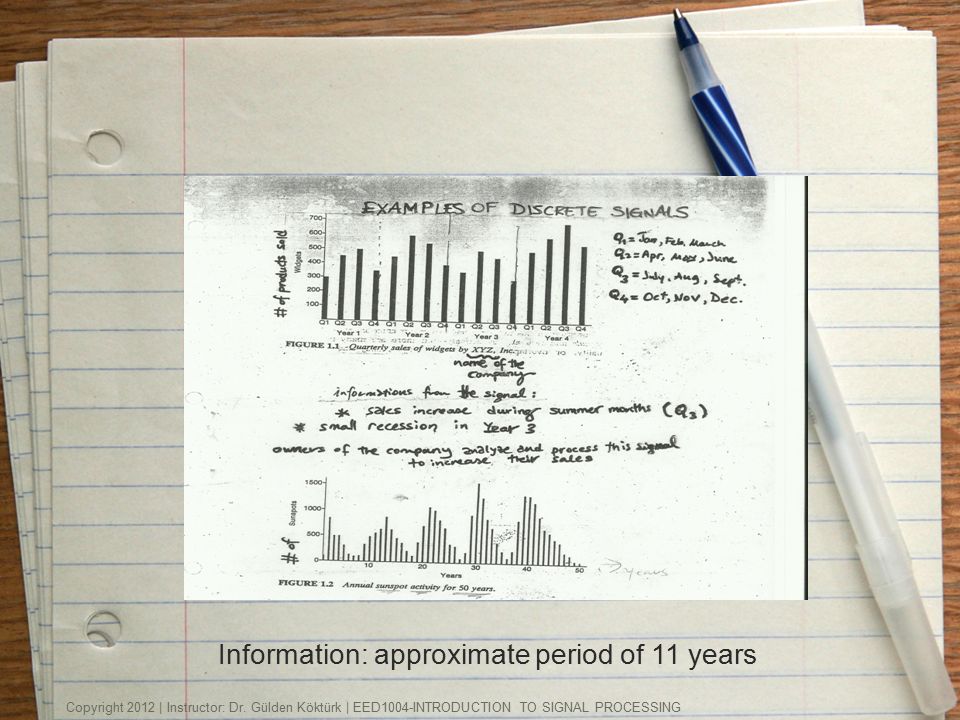 EXAMPLES OF DISCRETE SIGNALS
# of products sold
Widgets
700
600
500
400
300
200
100
Q1 Q2 Q3 Q4 Q1 Q2 Q3 Q4 Q1 Q2 Q3 Q4 Q1 Q2 Q3 Q4
Year 1 Year 2 Year 3 Year 4
Q1 = Jan, Feb, March
Q2 = Apr, May, June
Q3 = July, Aug, Sept.
Q4 = Oct, Nov, Dec.
FIGURE 1.1 Quarterly sales of widgets by XYZ, Inc.
name of the
company
informations from the signal:
* sales increase during summer months (Q3)
* small recession in Year 3
owners of the company analyze and process this signal
to increase their sales
# of
Sunspots
1500
1000
500
0
10 20 30 40 50
Years
years
FIGURE 1.2 Annual sunspot activity for 50 years.
Information: approximate period of 11 years
Copyright 2012 | Instructor: Dr. Gülden Köktürk | EED1004-INTRODUCTION TO SIGNAL PROCESSING